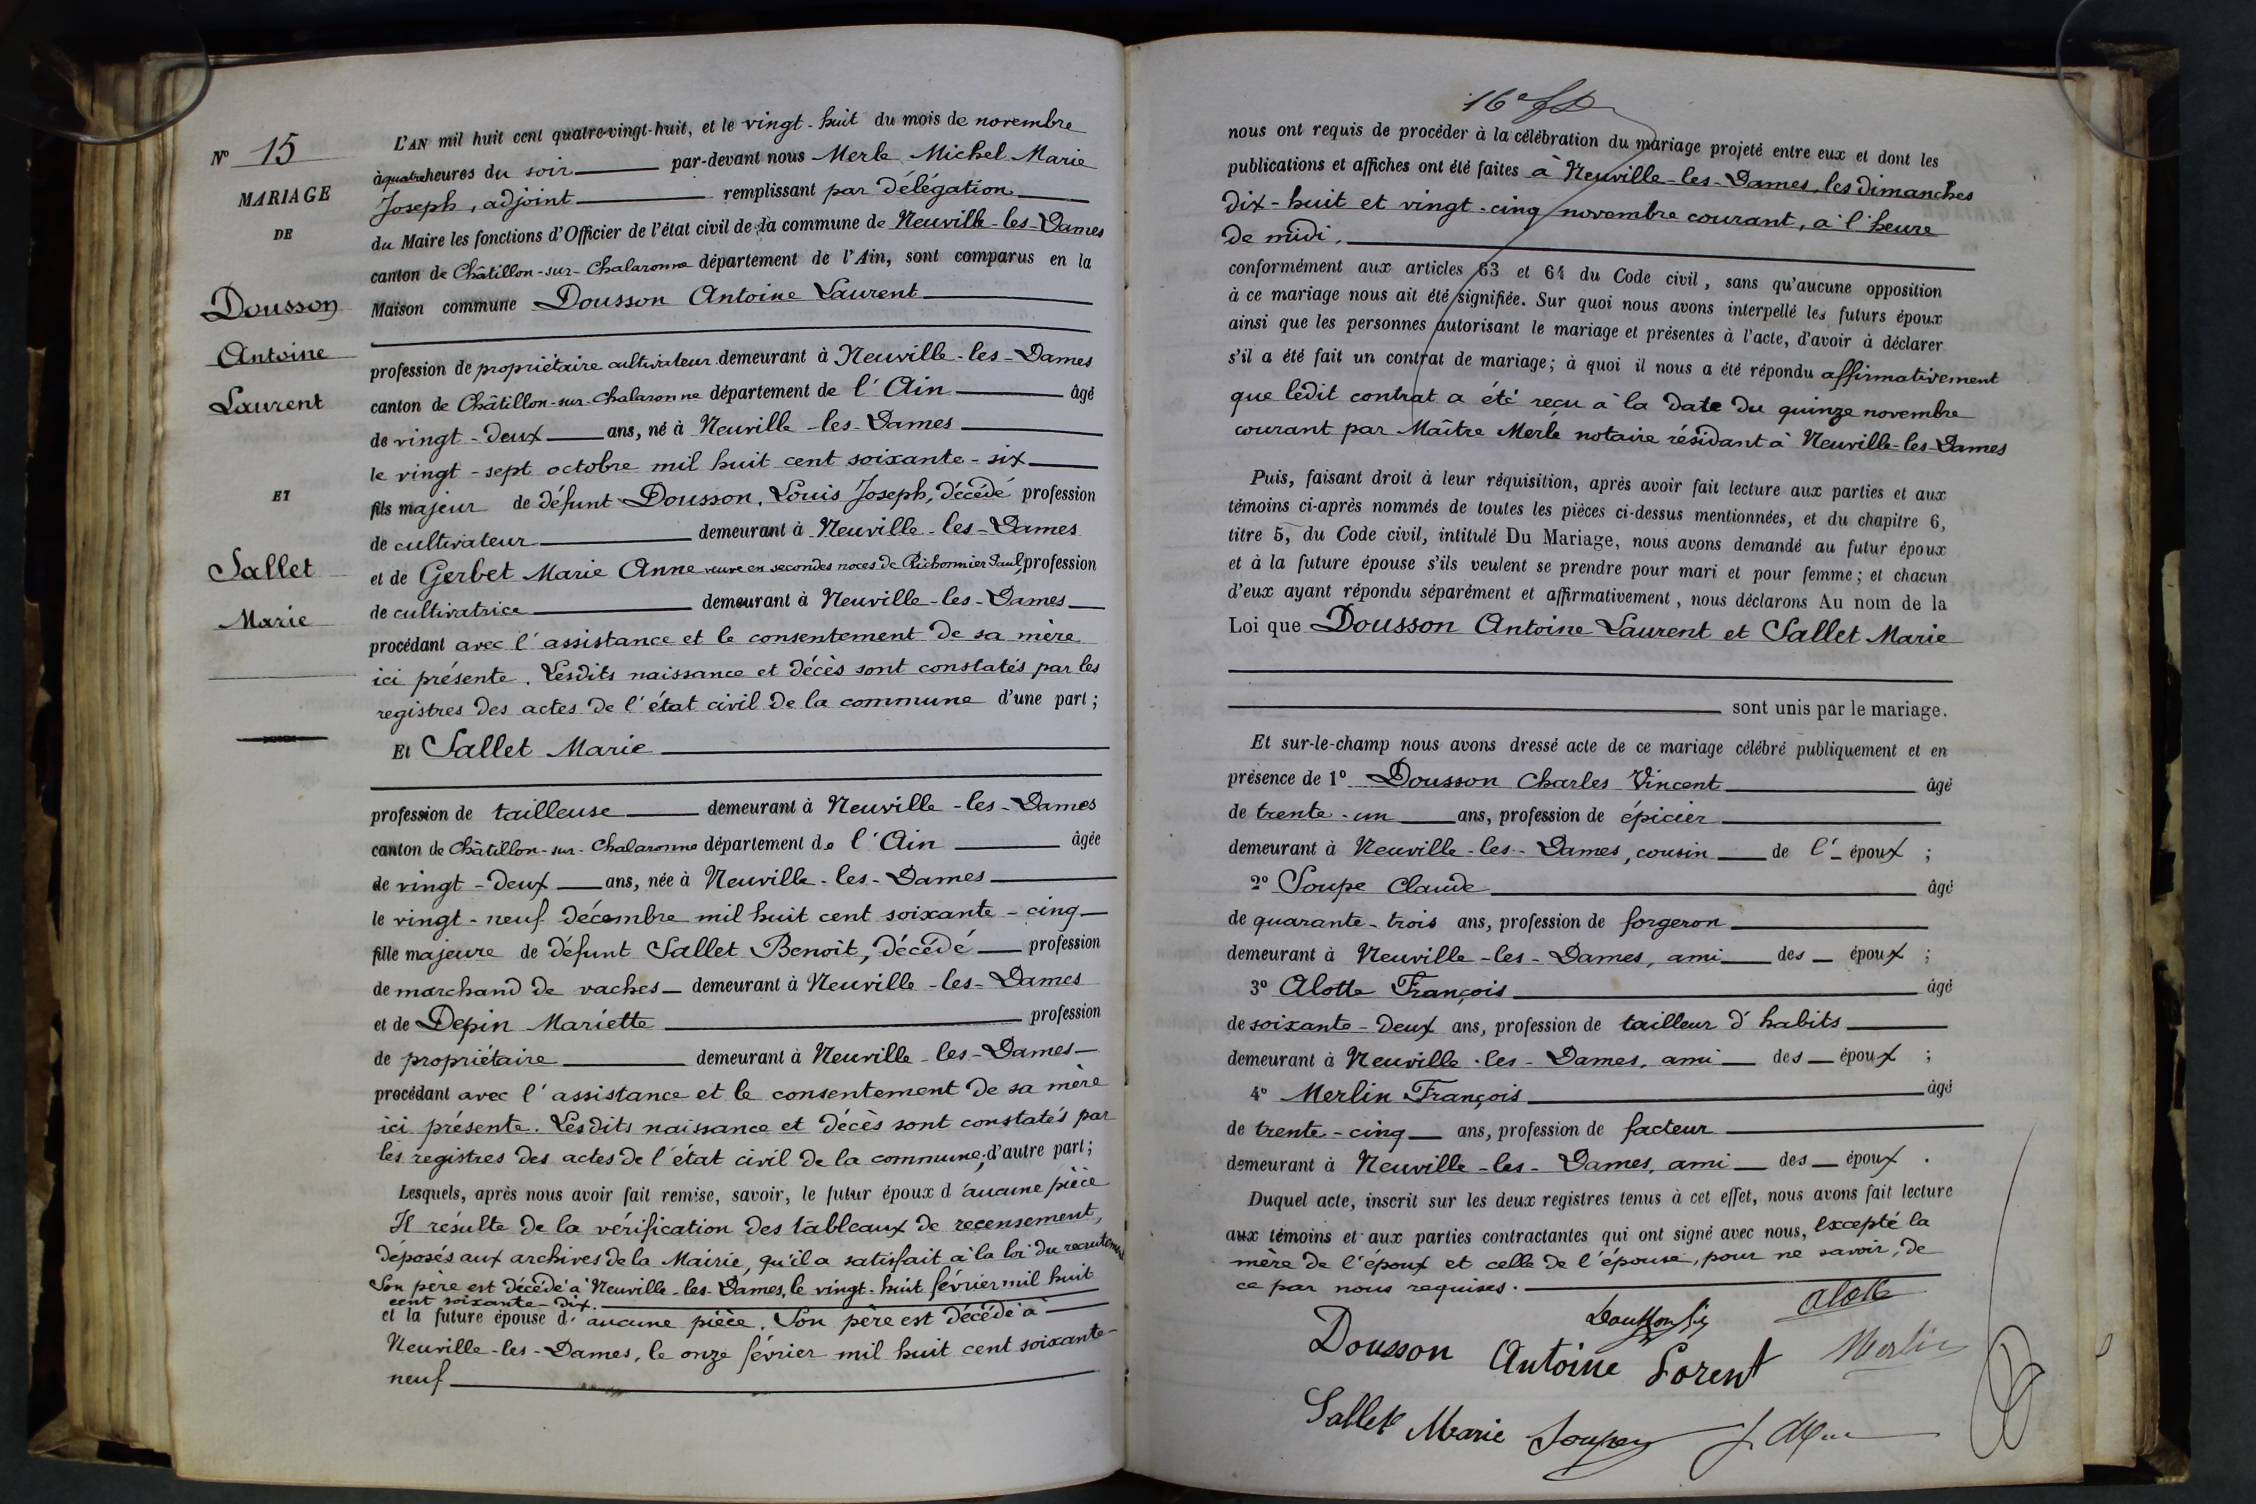 N° 15
MARIAGE
DE
Dousson
Antoine
Laurent
ET
Sallet
Marie
L'AN mil huit cent quatre-vingt-huit, et le vingt-huit du mois de novembre
à quatre heures du soir par-devant nous Merle Michel Marie
Joseph, adjoint remplissant par délégation
du Maire les fonctions d'Officier de l'état civil de la commune de Neuville-les-Dames
canton de Châtillon-sur-Chalaronne département de l'Ain, sont comparus en la
Maison commune Dousson Antoine Laurent
profession de propriétaire cultivateur demeurant à Neuville-les-Dames
canton de Châtillon-sur-Chalaronne département de l'Ain âgé
de vingt-deux ans, né à Neuville-les-Dames
le vingt-sept octobre mil huit cent soixante-six
fils majeur de défunt Dousson, Louis Joseph, décédé profession
de cultivateur demeurant à Neuville-les-Dames
et de Gerbet Marie Anne veuve en secondes noces de Richonnier Paul, profession
de cultivatrice demeurant à Neuville-les-Dames
procédant avec l'assistance et le consentement de sa mère
ici présente. Lesdits naissance et décès sont constatés par les
registres des actes de l'état civil de la commune d'une part;
Et Sallet Marie
profession de tailleuse demeurant à Neuville-les-Dames
canton de Châtillon-sur-Chalaronne département de l'Ain âgée
de vingt-deux ans, née à Neuville-les-Dames
le vingt-neuf décembre mil huit cent soixante-cinq
fille majeure de défunt Sallet Benoît, décédé profession
de marchand de vaches demeurant à Neuville-les-Dames
et de Depin Mariette profession
de propriétaire demeurant à Neuville-les-Dames
procédant avec l'assistance et le consentement de sa mère
ici présente. Lesdits naissance et décès sont constatés par
les registres des actes de l'état civil de la commune; d'autre part;
Lesquels, après nous avoir fait remise, savoir, le futur époux d'aucune pièce
Il résulte de la vérification des tableaux de recensement,
déposés aux archives de la Mairie, qu'il a satisfait à la loi du recrutement
Son père est décédé à Neuville-les-Dames, le vingt-huit février mil huit
cent soixante-dix.
et la future épouse d'aucune pièce. Son père est décédé à
Neuville-les-Dames, le onze février mil huit cent soixante-
neuf
16e
nous ont requis de procéder à la célébration du mariage projeté entre eux et dont les
publications et affiches ont été faites à Neuville-les-Dames, les dimanches
dix-huit et vingt-cinq novembre courant, à l'heure
de midi,
conformément aux articles 63 et 64 du Code civil, sans qu'aucune opposition
à ce mariage nous ait été signifiée. Sur quoi nous avons interpellé les futurs époux
ainsi que les personnes autorisant le mariage et présentes à l'acte, d'avoir à déclarer
s'il a été fait un contrat de mariage; à quoi il nous a été répondu affirmativement
que ledit contrat a été reçu à la date du quinze novembre
courant par Maître Merle notaire résidant à Neuville-les-Dames
Puis, faisant droit à leur réquisition, après avoir fait lecture aux parties et aux
témoins ci-après nommés de toutes les pièces ci-dessus mentionnées, et du chapitre 6,
titre 5, du Code civil, intitulé Du Mariage, nous avons demandé au futur époux
et à la future épouse s'ils veulent se prendre pour mari et pour femme; et chacun
d'eux ayant répondu séparément et affirmativement, nous déclarons Au nom de la
Loi que Dousson Antoine Laurent et Sallet Marie
sont unis par le mariage.
Et sur-le-champ nous avons dressé acte de ce mariage célébré publiquement et en
présence de 1° Dousson Charles Vincent âgé
de trente-un ans, profession de épicier
demeurant à Neuville-les-Dames, cousin de l'époux;
2° Soupe Claude âgé
de quarante-trois ans, profession de forgeron
demeurant à Neuville-les-Dames, ami des époux;
3° Alotte François âgé
de soixante-deux ans, profession de tailleur d'habits
demeurant à Neuville-les-Dames, ami des époux;
4° Merlin François âgé
de trente-cinq ans, profession de facteur
demeurant à Neuville-les-Dames, ami des époux.
Duquel acte, inscrit sur les deux registres tenus à cet effet, nous avons fait lecture
aux témoins et aux parties contractantes qui ont signé avec nous, excepté la
mère de l'époux et celle de l'épouse, pour ne savoir, de
ce par nous requises.
Alotte
Dousson Antoine Lorent Merlin
Sallet Marie